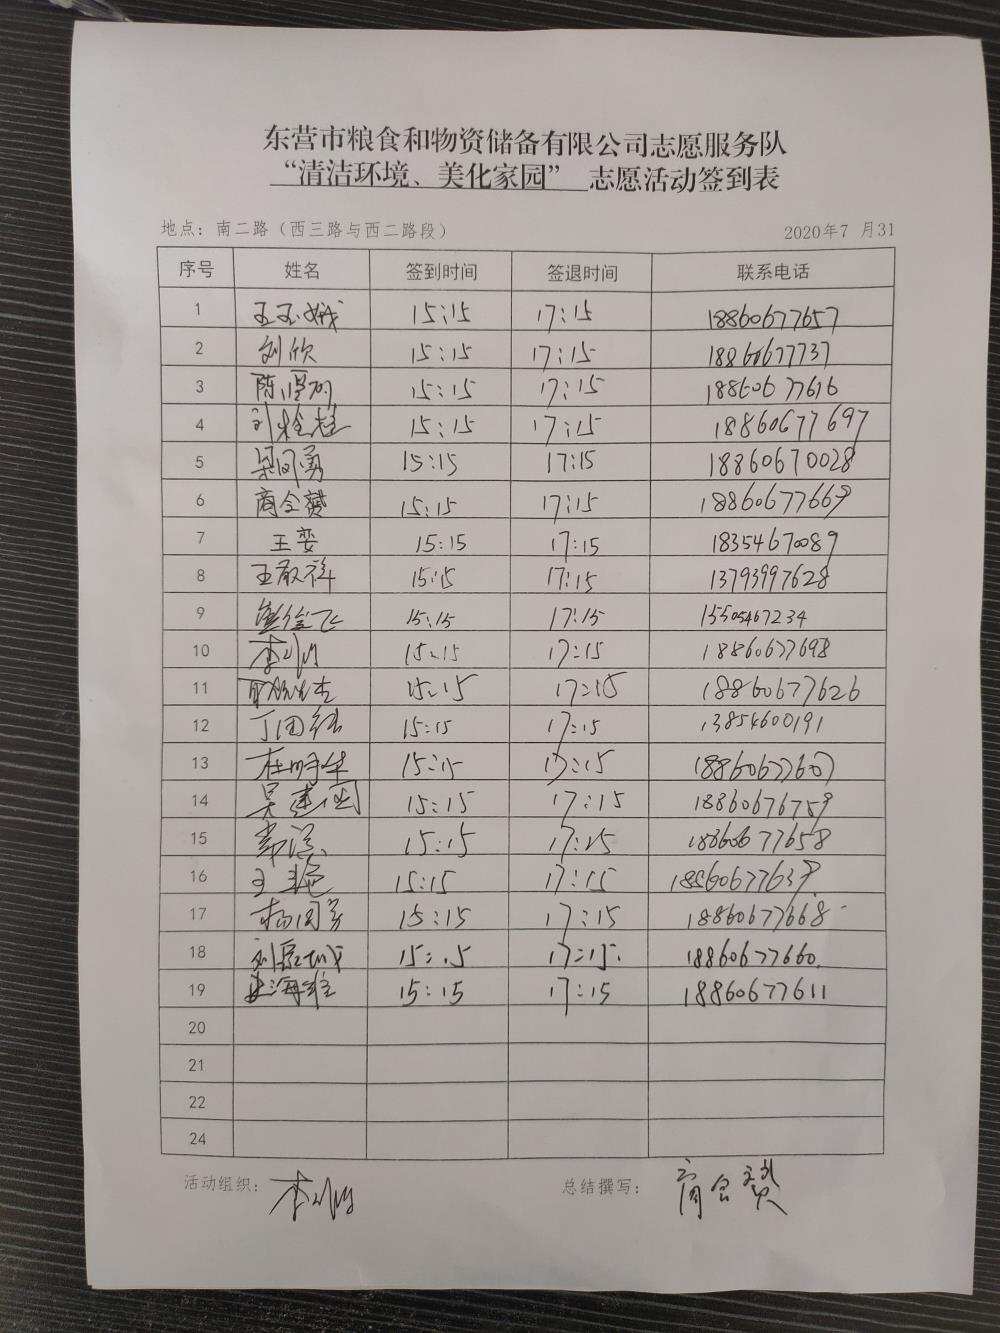 东营市粮食和物资储备有限公司志愿服务队
“清洁环境、美化家园” 志愿活动签到表
地点：南二路（西三路与西二路段） 2020年7 月31
序号 姓名 签到时间 签退时间 联系电话
1 王玉娥 15:15 17:15 18860677657
2 刘欣 15:15 17:15 18860677737
3 15:15 17:15 18860677616
4 15:15 17:15 18860677697
5 梁凤勇 15:15 17:15 18860670028
6 商会赞 15:15 17:15 18860677669
7 王娈 15:15 17:15 18354670089
8 王敬祥 15:15 17:15 13793997628
9 15:15 17:15 15505467234
10 15:15 17:15 18860677698
11 15:15 17:15 18860677626
12 丁国强 15:15 17:15 13854600191
13 杜明华 15:15 17:15 18860677607
14 吴建国 15:15 17:15 18860676759
15 15:15 17:15 18860677658
16 王艳 15:15 17:15 18860677639
17 杨国芳 15:15 17:15 18860677668
18 15:15 17:15 18860677660
19 15:15 17:15 18860677611
20
21
22
24
活动组织： 总结撰写： 商会赞